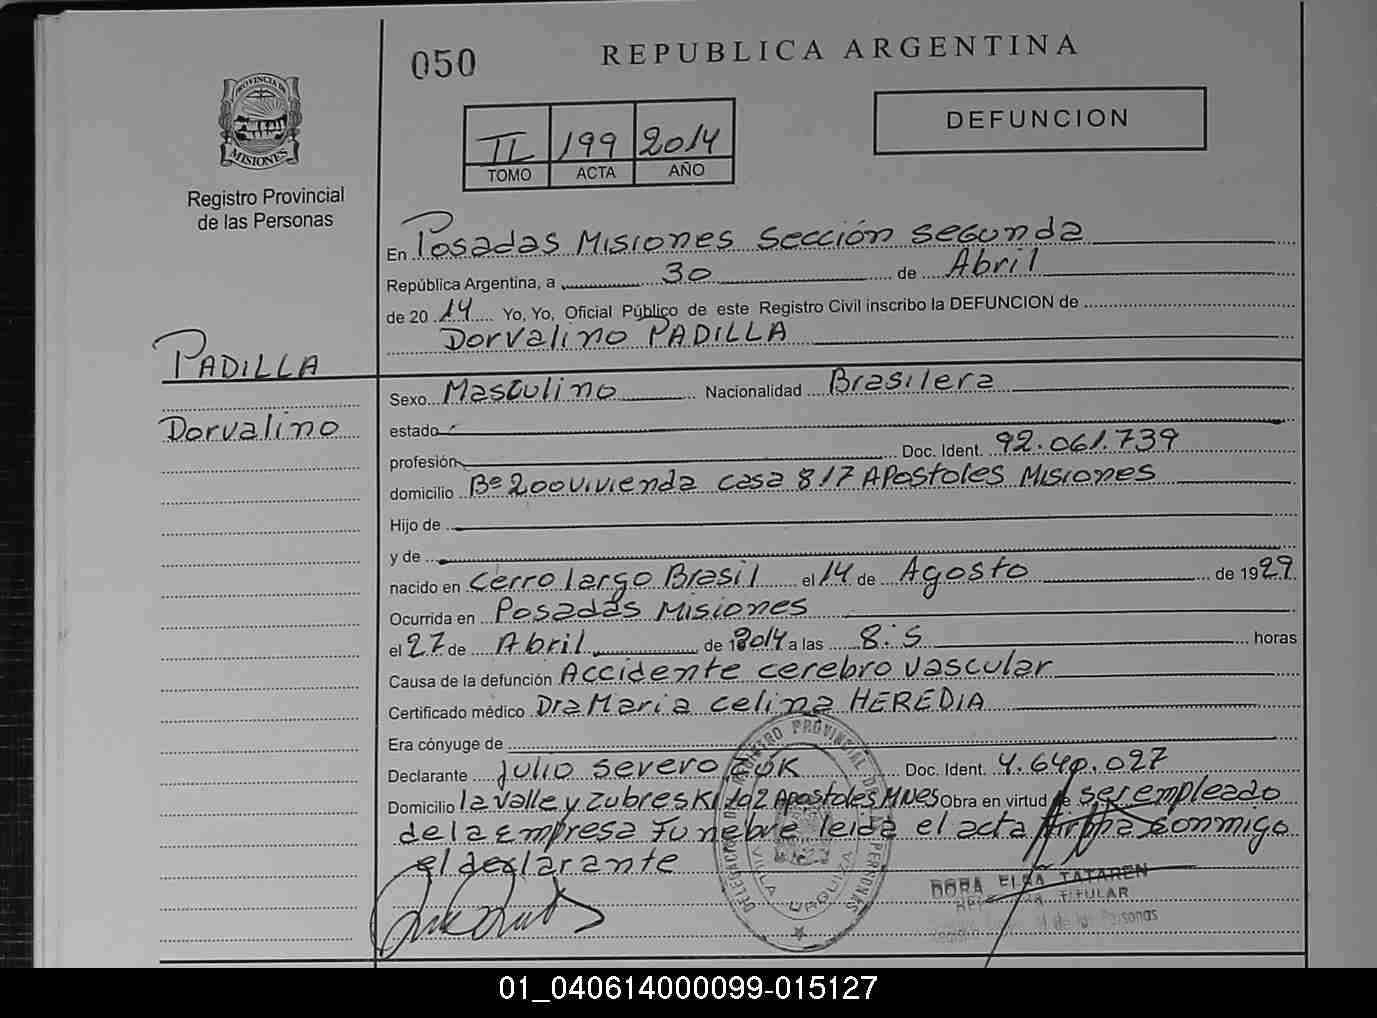 050
REPUBLICA ARGENTINA
PROVINCIA DE
MISIONES
Registro Provincial
de las Personas
II 199 2014
TOMO ACTA AÑO
DEFUNCION
En Posadas Misiones sección segunda
República Argentina, a 30 de Abril
de 2014 Yo, Yo, Oficial Público de este Registro Civil inscribo la DEFUNCION de
Dorvalino PADILLA
PADILLA
Dorvalino
Sexo Masculino Nacionalidad Brasilera
estado
profesión Doc. Ident. 92.061.739
domicilio Bº 200 vivienda casa 817 Apostoles Misiones
Hijo de
y de
nacido en cerro largo Brasil el 14 de Agosto de 1929
Ocurrida en Posadas Misiones
el 27 de Abril de 2014 a las 8:5 horas
Causa de la defunción Accidente cerebro vascular
Certificado médico Dra Maria celina HEREDIA
Era cónyuge de
Declarante Julio severo Doc. Ident. 4.640.027
Domicilio lavalle y Zubreski 192 Apostoles MNES Obra en virtud de ser empleado
de la Empresa Funebre leida el acta Firma conmigo
el declarante
DELEGACION REGISTRO PROVINCIAL DE LAS PERSONAS
VILLA URQUIZA
DORA ELSA TATAREN
TITULAR
de las Personas
01_040614000099-015127